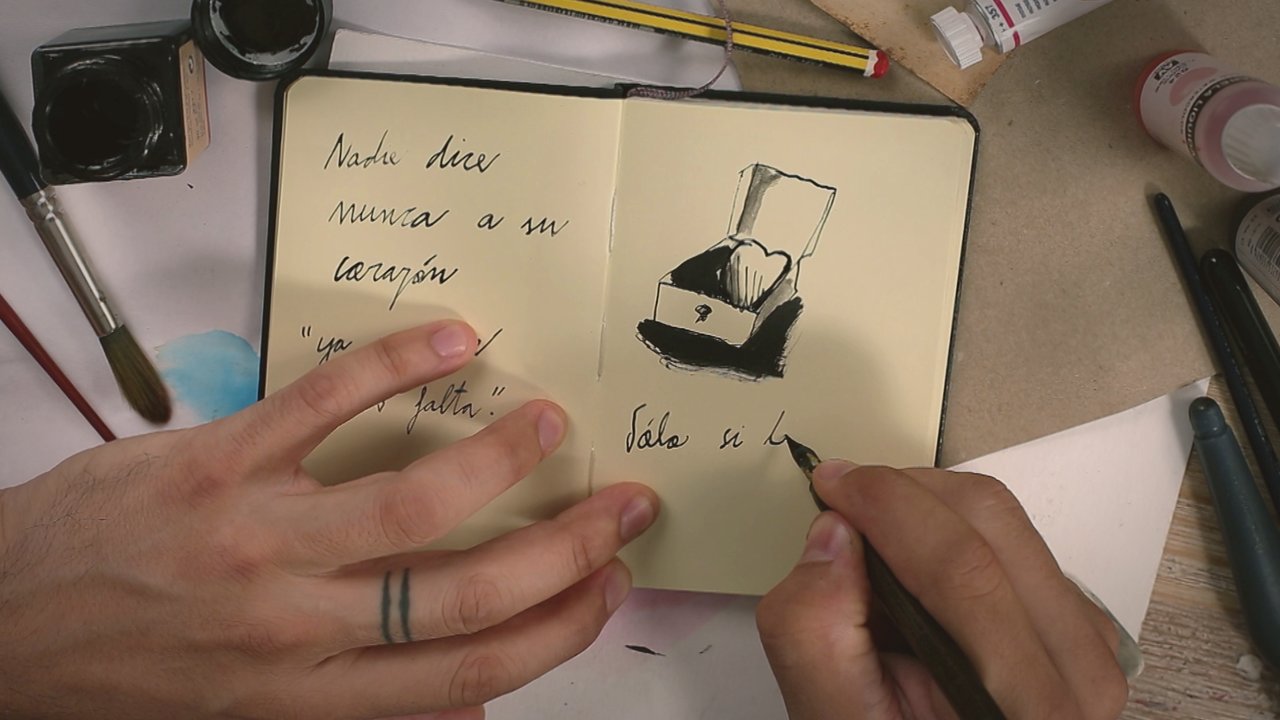 Nadie dice
nunca a su
corazón
"ya
falta."
Sólo si l